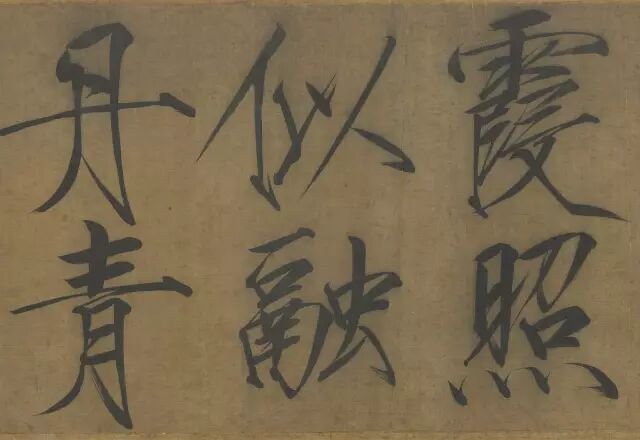 霞照
似融
丹青